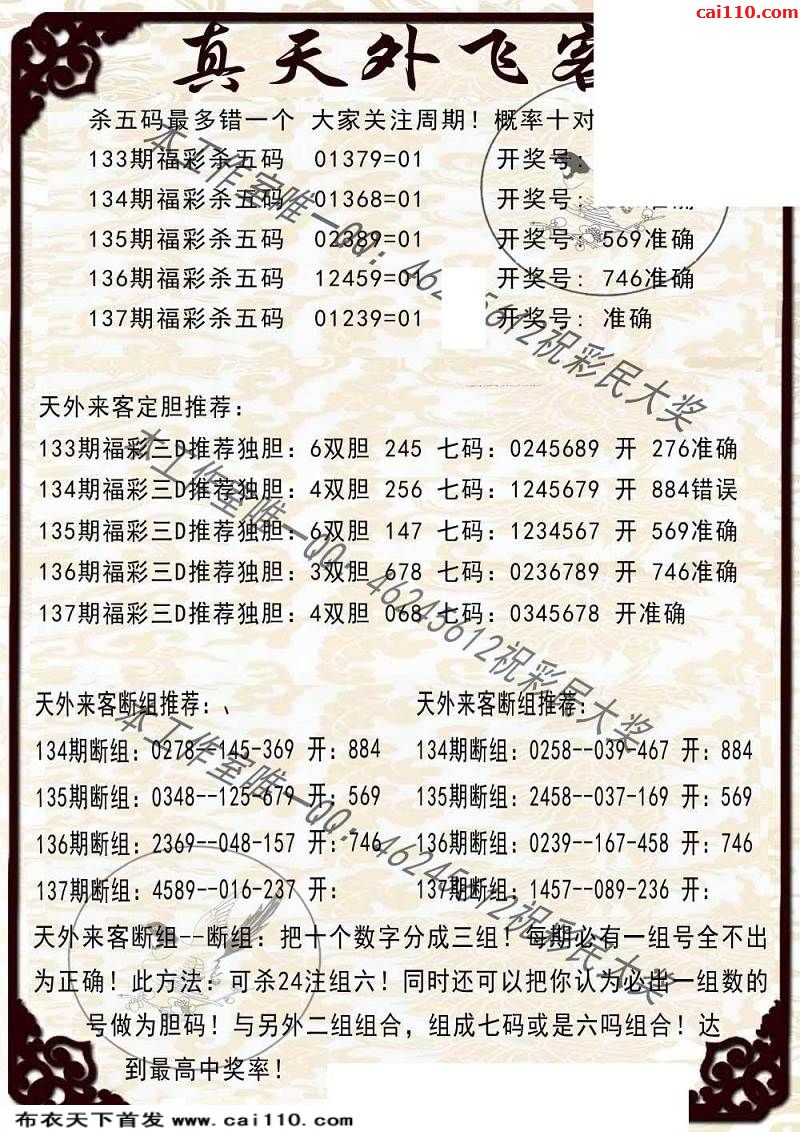 cai110.com
真天外飞客
杀五码最多错一个 大家关注周期！概率十对
133期福彩杀五码 01379=01 开奖号：
134期福彩杀五码 01368=01 开奖号：准确
135期福彩杀五码 02389=01 开奖号：569准确
136期福彩杀五码 12459=01 开奖号：746准确
137期福彩杀五码 01239=01 开奖号：准确
天外来客定胆推荐：
133期福彩三D推荐独胆：6双胆 245 七码：0245689 开 276准确
134期福彩三D推荐独胆：4双胆 256 七码：1245679 开 884错误
135期福彩三D推荐独胆：6双胆 147 七码：1234567 开 569准确
136期福彩三D推荐独胆：3双胆 678 七码：0236789 开 746准确
137期福彩三D推荐独胆：4双胆 068 七码：0345678 开准确
天外来客断组推荐：、 天外来客断组推荐：
134期断组：0278--145-369 开：884 134期断组：0258--039-467 开：884
135期断组：0348--125-679 开：569 135期断组：2458--037-169 开：569
136期断组：2369--048-157 开：746 136期断组：0239--167-458 开：746
137期断组：4589--016-237 开： 137期断组：1457--089-236 开：
天外来客断组--断组：把十个数字分成三组！每期必有一组号全不出
为正确！此方法：可杀24注组六！同时还可以把你认为必出一组数的
号做为胆码！与另外二组组合，组成七码或是六吗组合！达
到最高中奖率！
本工作室唯一QQ：46245612祝彩民大奖
本工作室唯一QQ：46245612祝彩民大奖
本工作室唯一QQ：46245612祝彩民大奖
布衣天下首发 www.cai110.com